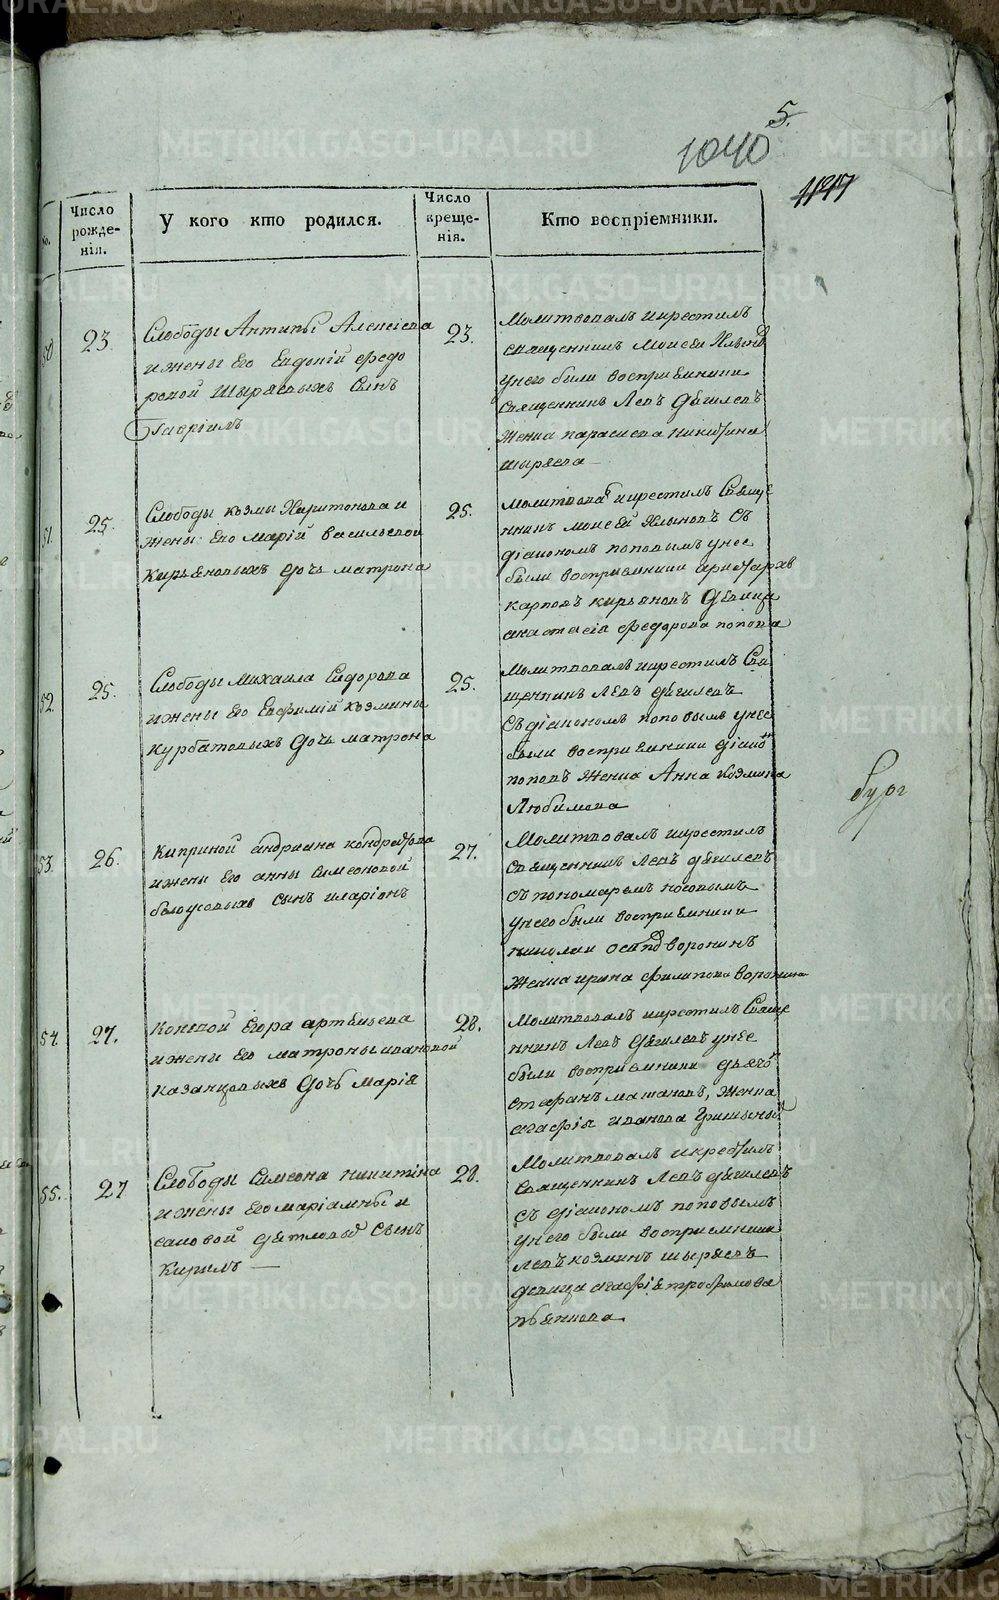 5.
1040
1197
№.
Число рожде-нія.
У кого кто родился.
Число креще-нія.
Кто воспріемники.
50
23.
Слободы Антипы Алексіева
и жены Его Евдокій федо
ровой Шыряевыхъ Сынъ
Гавріилъ
23.
Молитвовалъ и крестилъ
священникъ Моисей Хлынов
у него были воспріемники
Священникъ Левъ Дягилевъ
Женка парасиева Никитина
шыряева
51.
25.
Слободы козмы Харитонова и
жены Его Марій васильевой
Кирьяновыхъ Дочь матрона
25.
Молитвова и крестилъ Свяще
нникъ моисей Хлыновъ Съ
діакономъ поповымъ у нее
были воспріемники аристархъ
карповъ кирьяновъ Девица
анастасія федорова попова
52.
25.
Слободы Михаила Сидорова
и жены Его Евфимій козмины
курбатовыхъ Дочь матрона
25.
Молитвовалъ и крестилъ Свя
щенникъ Левъ дягилевъ
Съ діакономъ поповымъ у нее
были воспріемники діако
поповъ Женка Анна Козмина
Любимова
53.
26.
Киприной андриана кондратова
и жены Его анны Симеоновой
белоусовыхъ сынъ иларіонъ
27.
Молитвовалъ и крестилъ
священникъ Левъ дягилевъ
съ пономаремъ носовымъ
у него были воспріемники
николаи осипов воронинъ
Женка ирина филипова воронина
54.
27.
Коневой Егора артемьева
и жены Его матроны ивановой
казанцовыхъ Дочь Марія
28.
Молитвовалъ и крестилъ Свяще
нникъ Левъ Дягилевъ у нее
были воспріемники дьячо
стефанъ машановъ, женка
агафія иванова
55.
27
Слободы Симеона никитина
и жены Его маріамны и
саковой детловы Сынъ
Кирилъ
28.
Молитвовалъ и крестилъ
Священникъ Левъ дягилевъ
съ діакономъ поповымъ
у него были воспріемники
левъ козминъ шыряевъ
девица агафія трофимова
пьянкова
бург
METRIKI.GASO-URAL.RU